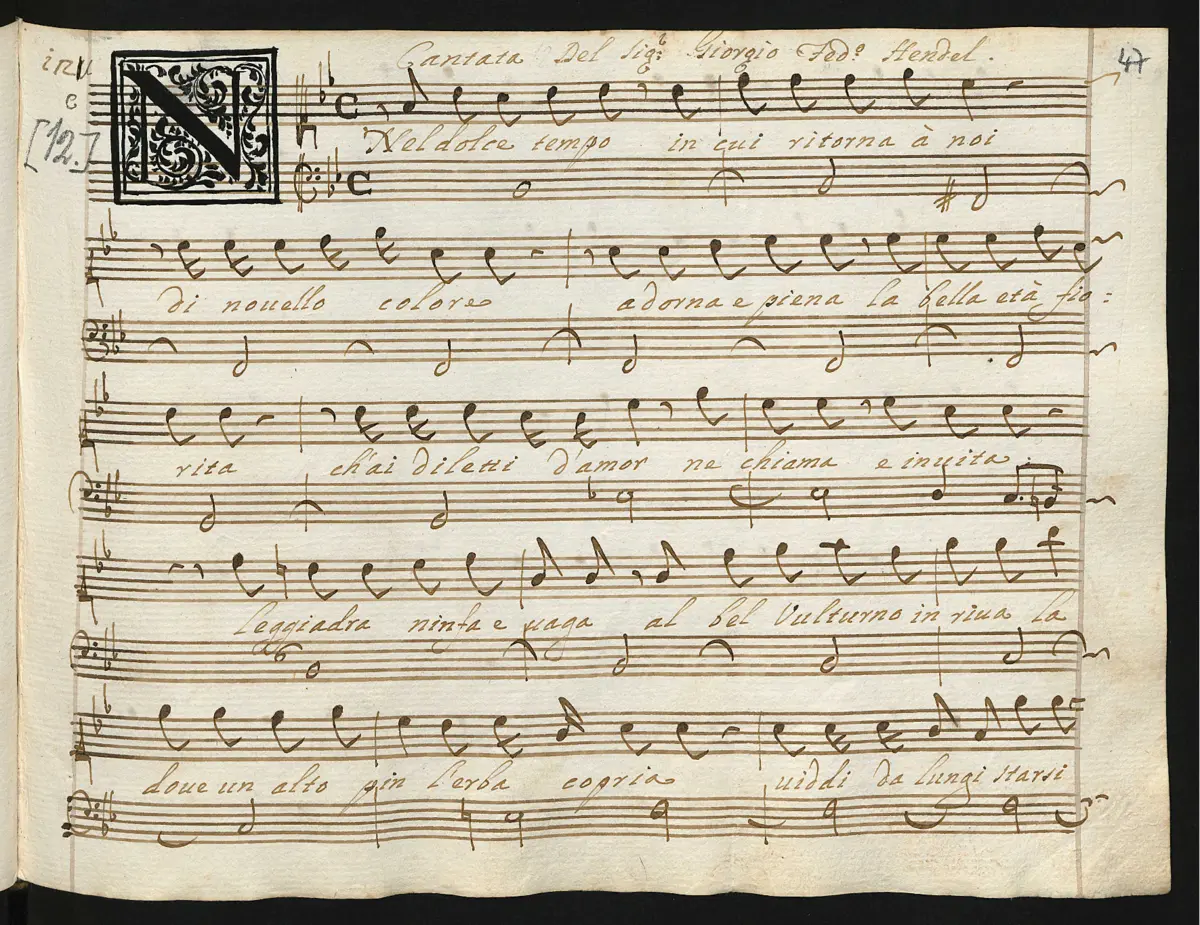 Cantata Del Sigr: Giorgio Fedo. Hendel.
47
[12.]
N
Nel dolce tempo in cui ritorna à noi
di nouello colore adorna e piena la bella età fio=
rita ch'ai diletti d'amor ne chiama e inuita.
leggiadra ninfa e uaga al bel Vulturno in riua la
doue un alto pin l'erba copria uiddi da lungi starsi